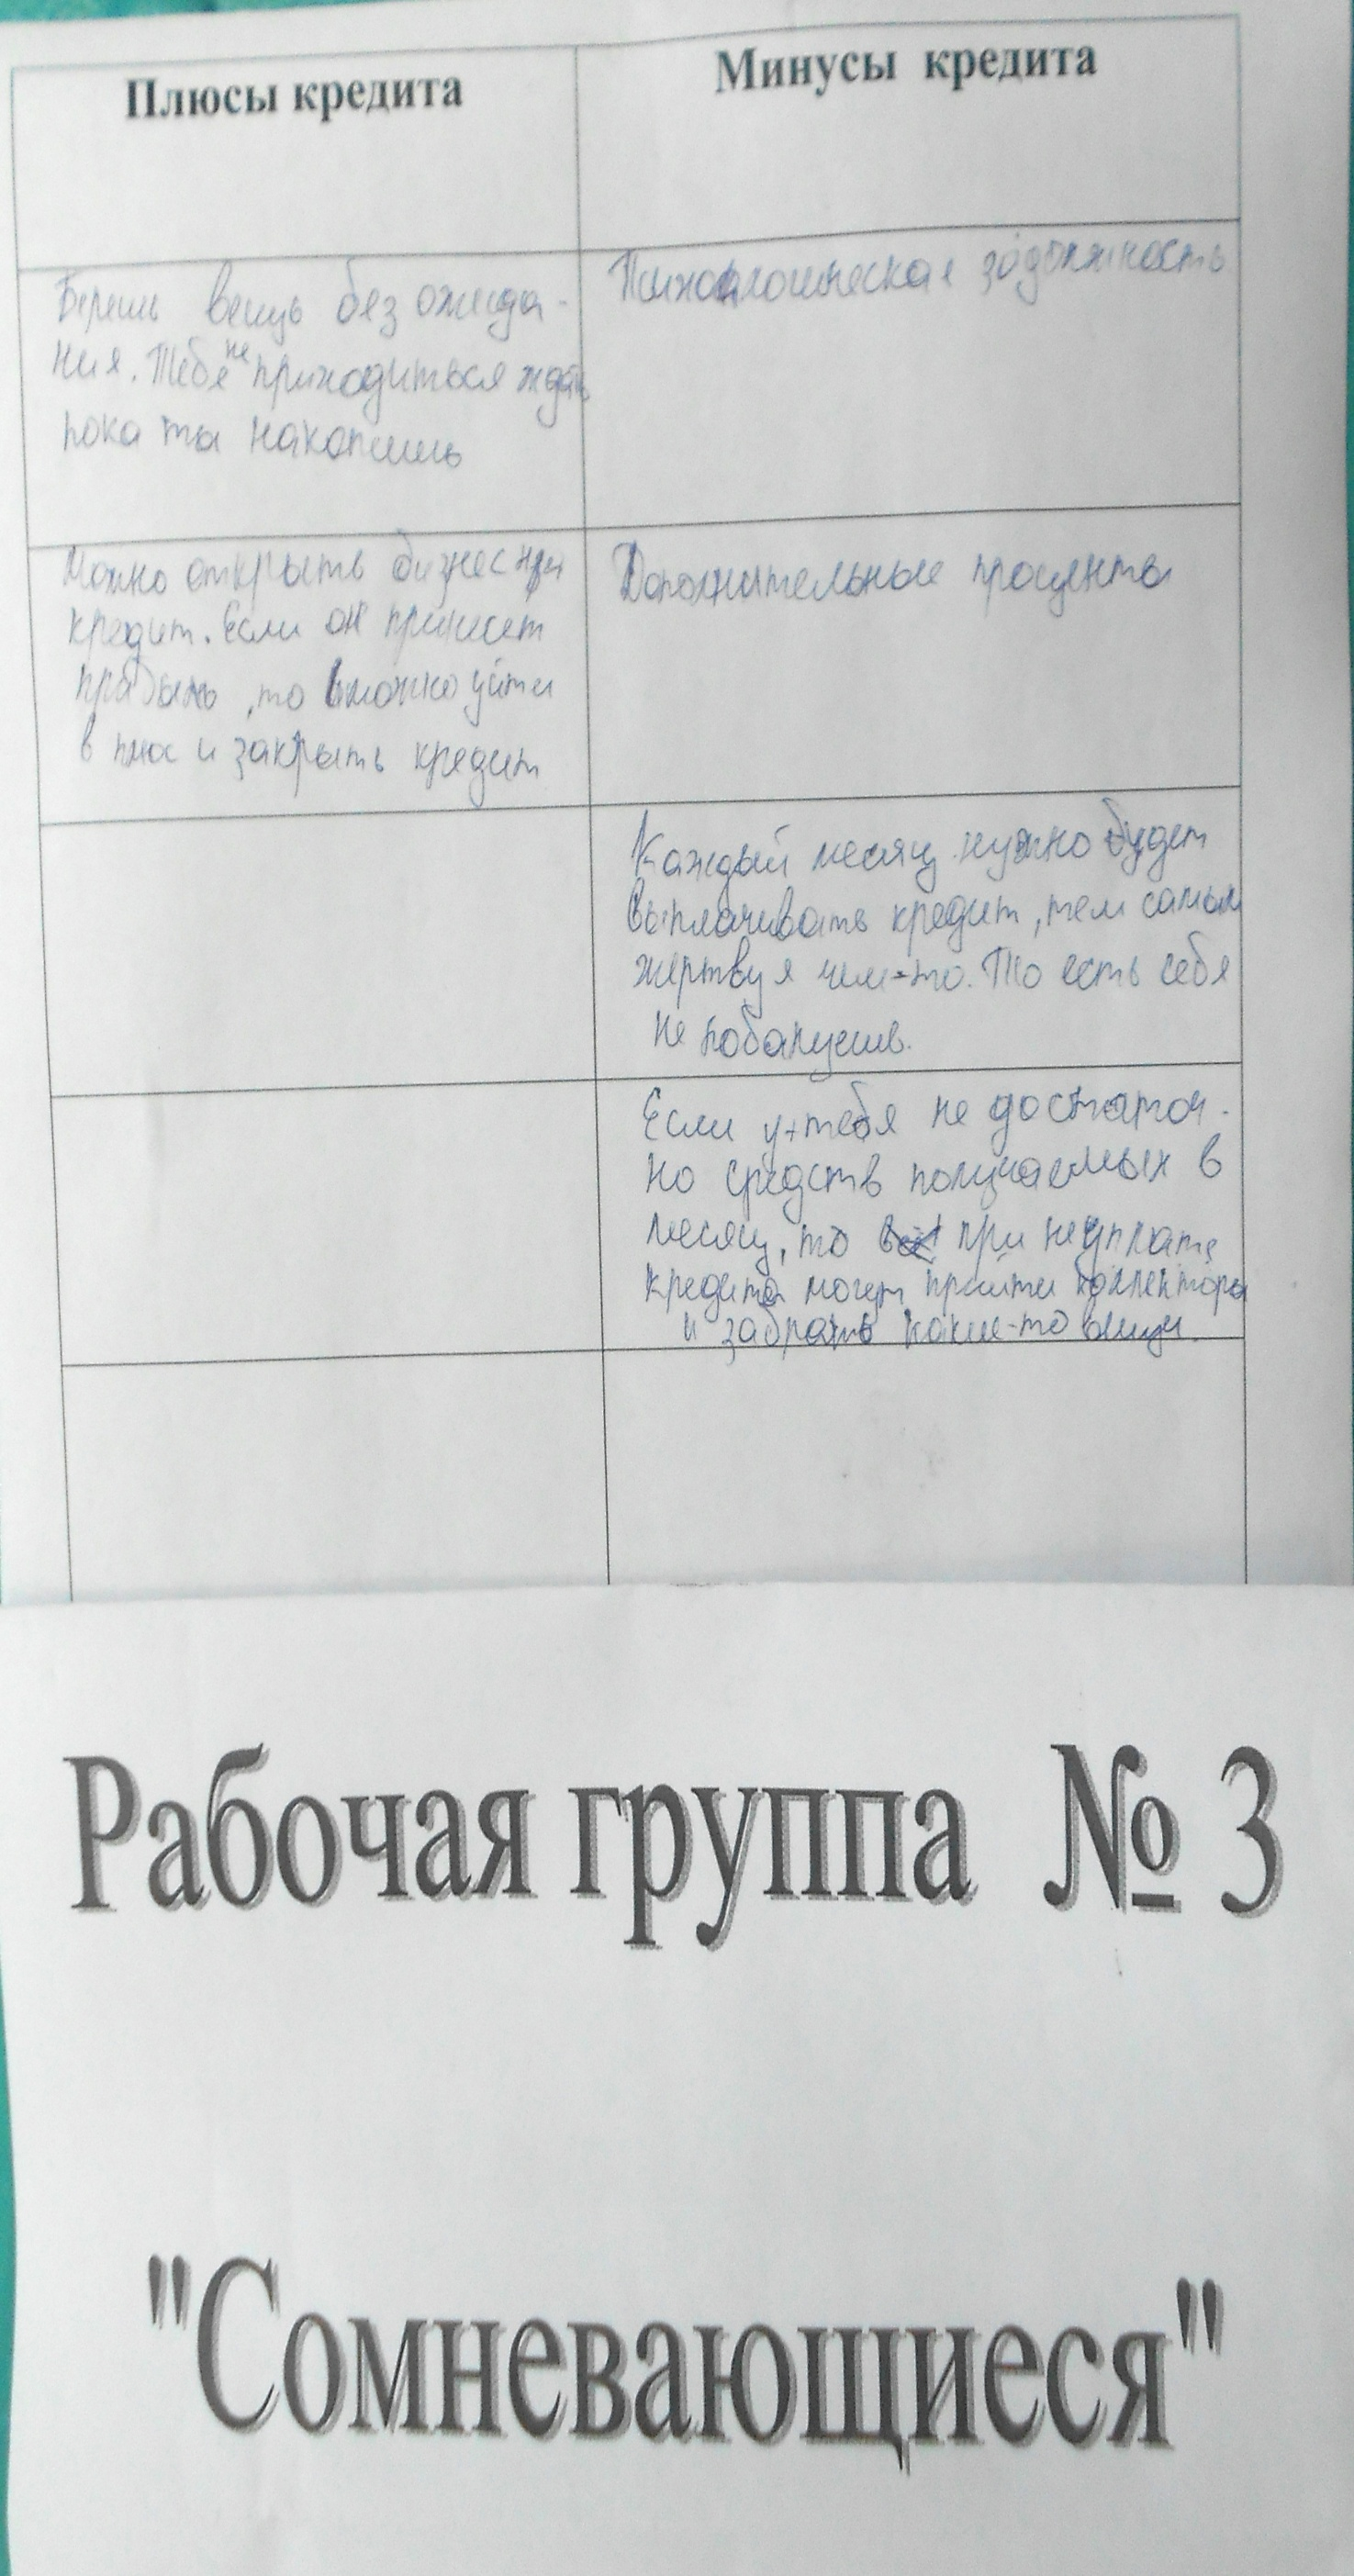 Плюсы кредита
Минусы кредита
Берешь вещь без ожида-
ния. Тебе не приходиться ждать
пока ты накопишь
Психологическая задолжность
Можно открыть бизнес при
кредит. Если он принесет
прибыль, то можно уйти
в плюс и закрыть кредит
Дополнительные проценты
Каждый месяц нужно будет
выплачивать кредит, тем самым
жертвуя чем-то. То есть себя
не побалуешь.
Если у тебя не достаточ-
но средств получаемых в
месяц, то при неуплате
кредита могут прийти коллекторы
и забрать какие-то вещи.
Рабочая группа № 3
"Сомневающиеся"